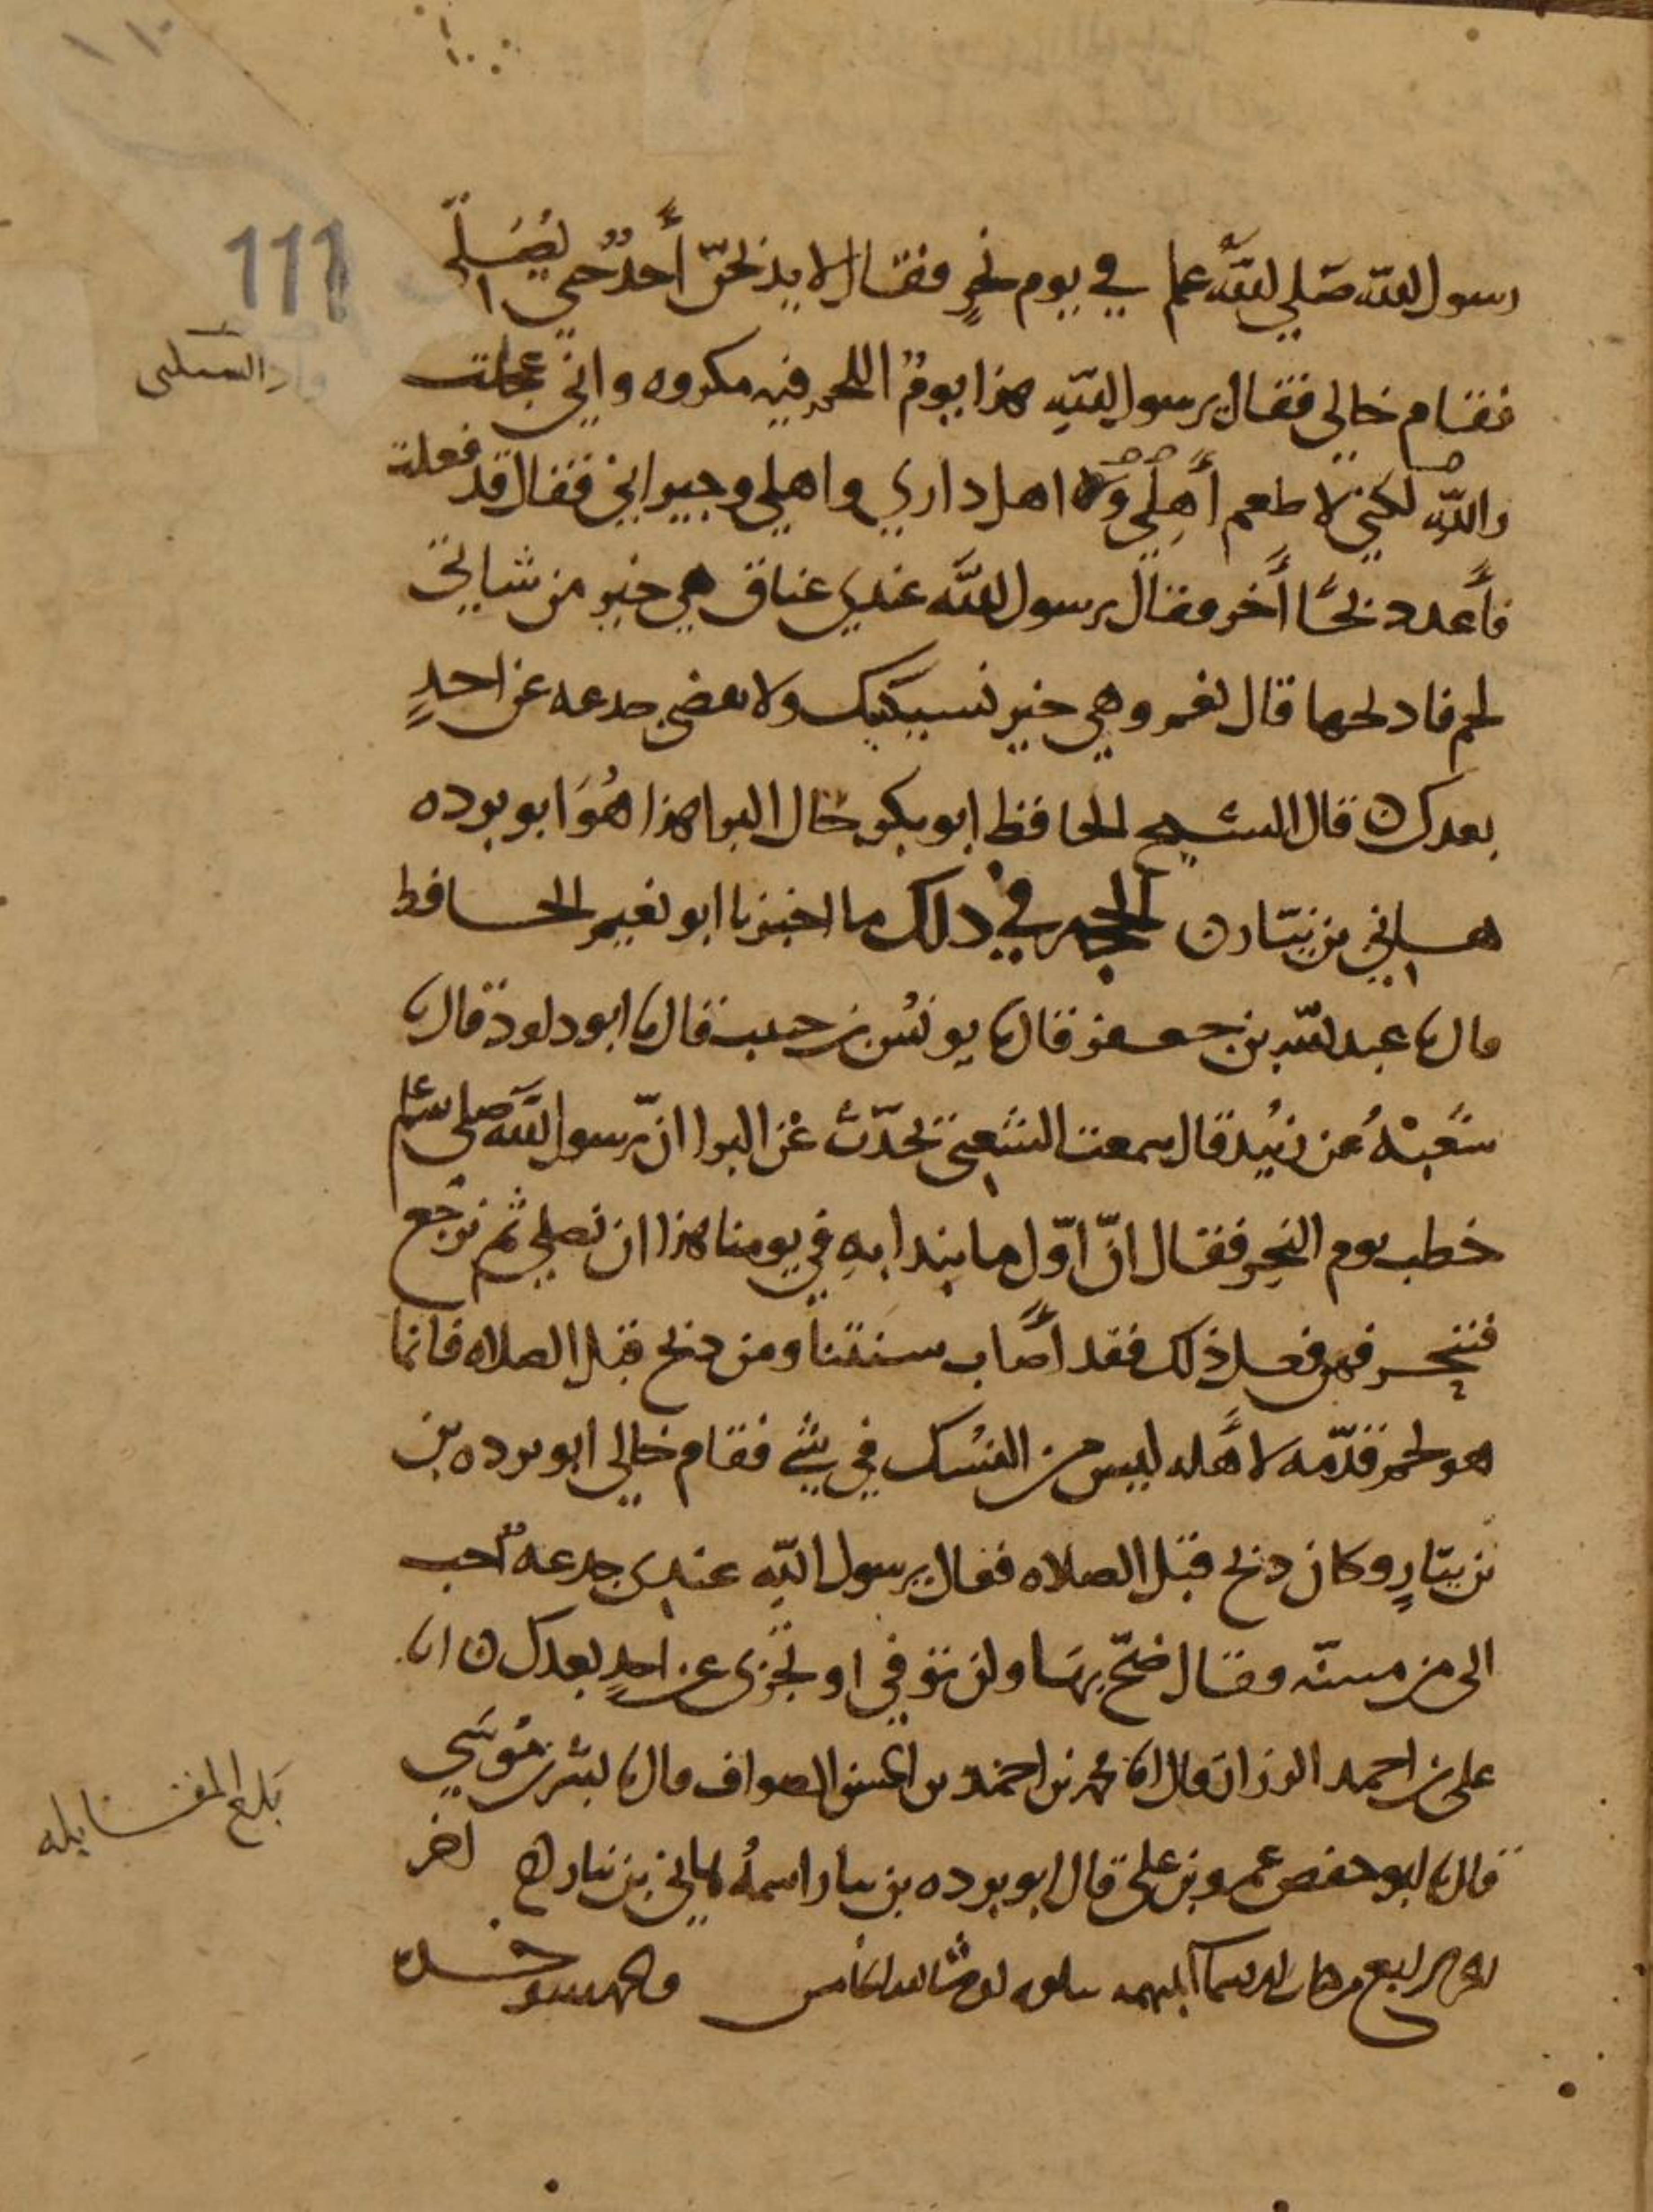 111
رسول الله صلي الله عليه وسلم في يوم نحر فقال لا يذبحن أحد حتي يصلي
فقام خالي فقال يرسول الله هذا يوم اللحم فيه مكروه واني عجلت
والله لكني لاطعم أهلي و اهل داري واهلي وجيراني فقال قد فعلت
فأعد ذبحا أخر فقال يرسول الله عندي عناق هي خير من شاتي
لحم فاذبحها قال نعم وهي خير نسيكتيك ولا تقضي جدعه عن احد
بعدك ن قال الشيخ الحافظ ابو بكر خال البرا هذا هو ابو برده
هاني بن نيار ن الحجه في ذلك ما اخبرنا ابو نعيم الحافظ
قال نا عبد الله بن جعفر قال نا يونس بن حبيب قال نا ابو داود قال نا
شعبة عن زبيد قال سمعت الشعبي يحدث عن البرا ان رسول الله صلى الله عليه وسلم
خطب يوم النحر فقال ان اول ما نبدا به في يومنا هذا ان نصلي ثم نرجع
فننحر فمن فعل ذلك فقد أصاب سنتنا ومن ذبح قبل الصلاه فانما
هو لحم قدمه لأهله ليس من النسك في شي فقام خالي ابو برده بن
بن نيار وكان ذبح قبل الصلاه فقال يرسول الله عندي جدعه أحب
الى من مسنه فقال ضح بها ولن توفي او تجزى عن احد بعدك ن انا
على بن احمد الرزاز قال انا محمد بن احمد بن الحسن الصواف قال نا بشر بن موسي
قال نا ابو حفص عمرو بن علي قال ابو برده بن نيار اسمه هاني بن نيار اخر
الجزء الرابع من كتاب الاسماء المبهمه يتلوه ان شا الله الخامس والحمد لله وحده
بلغ المقابله